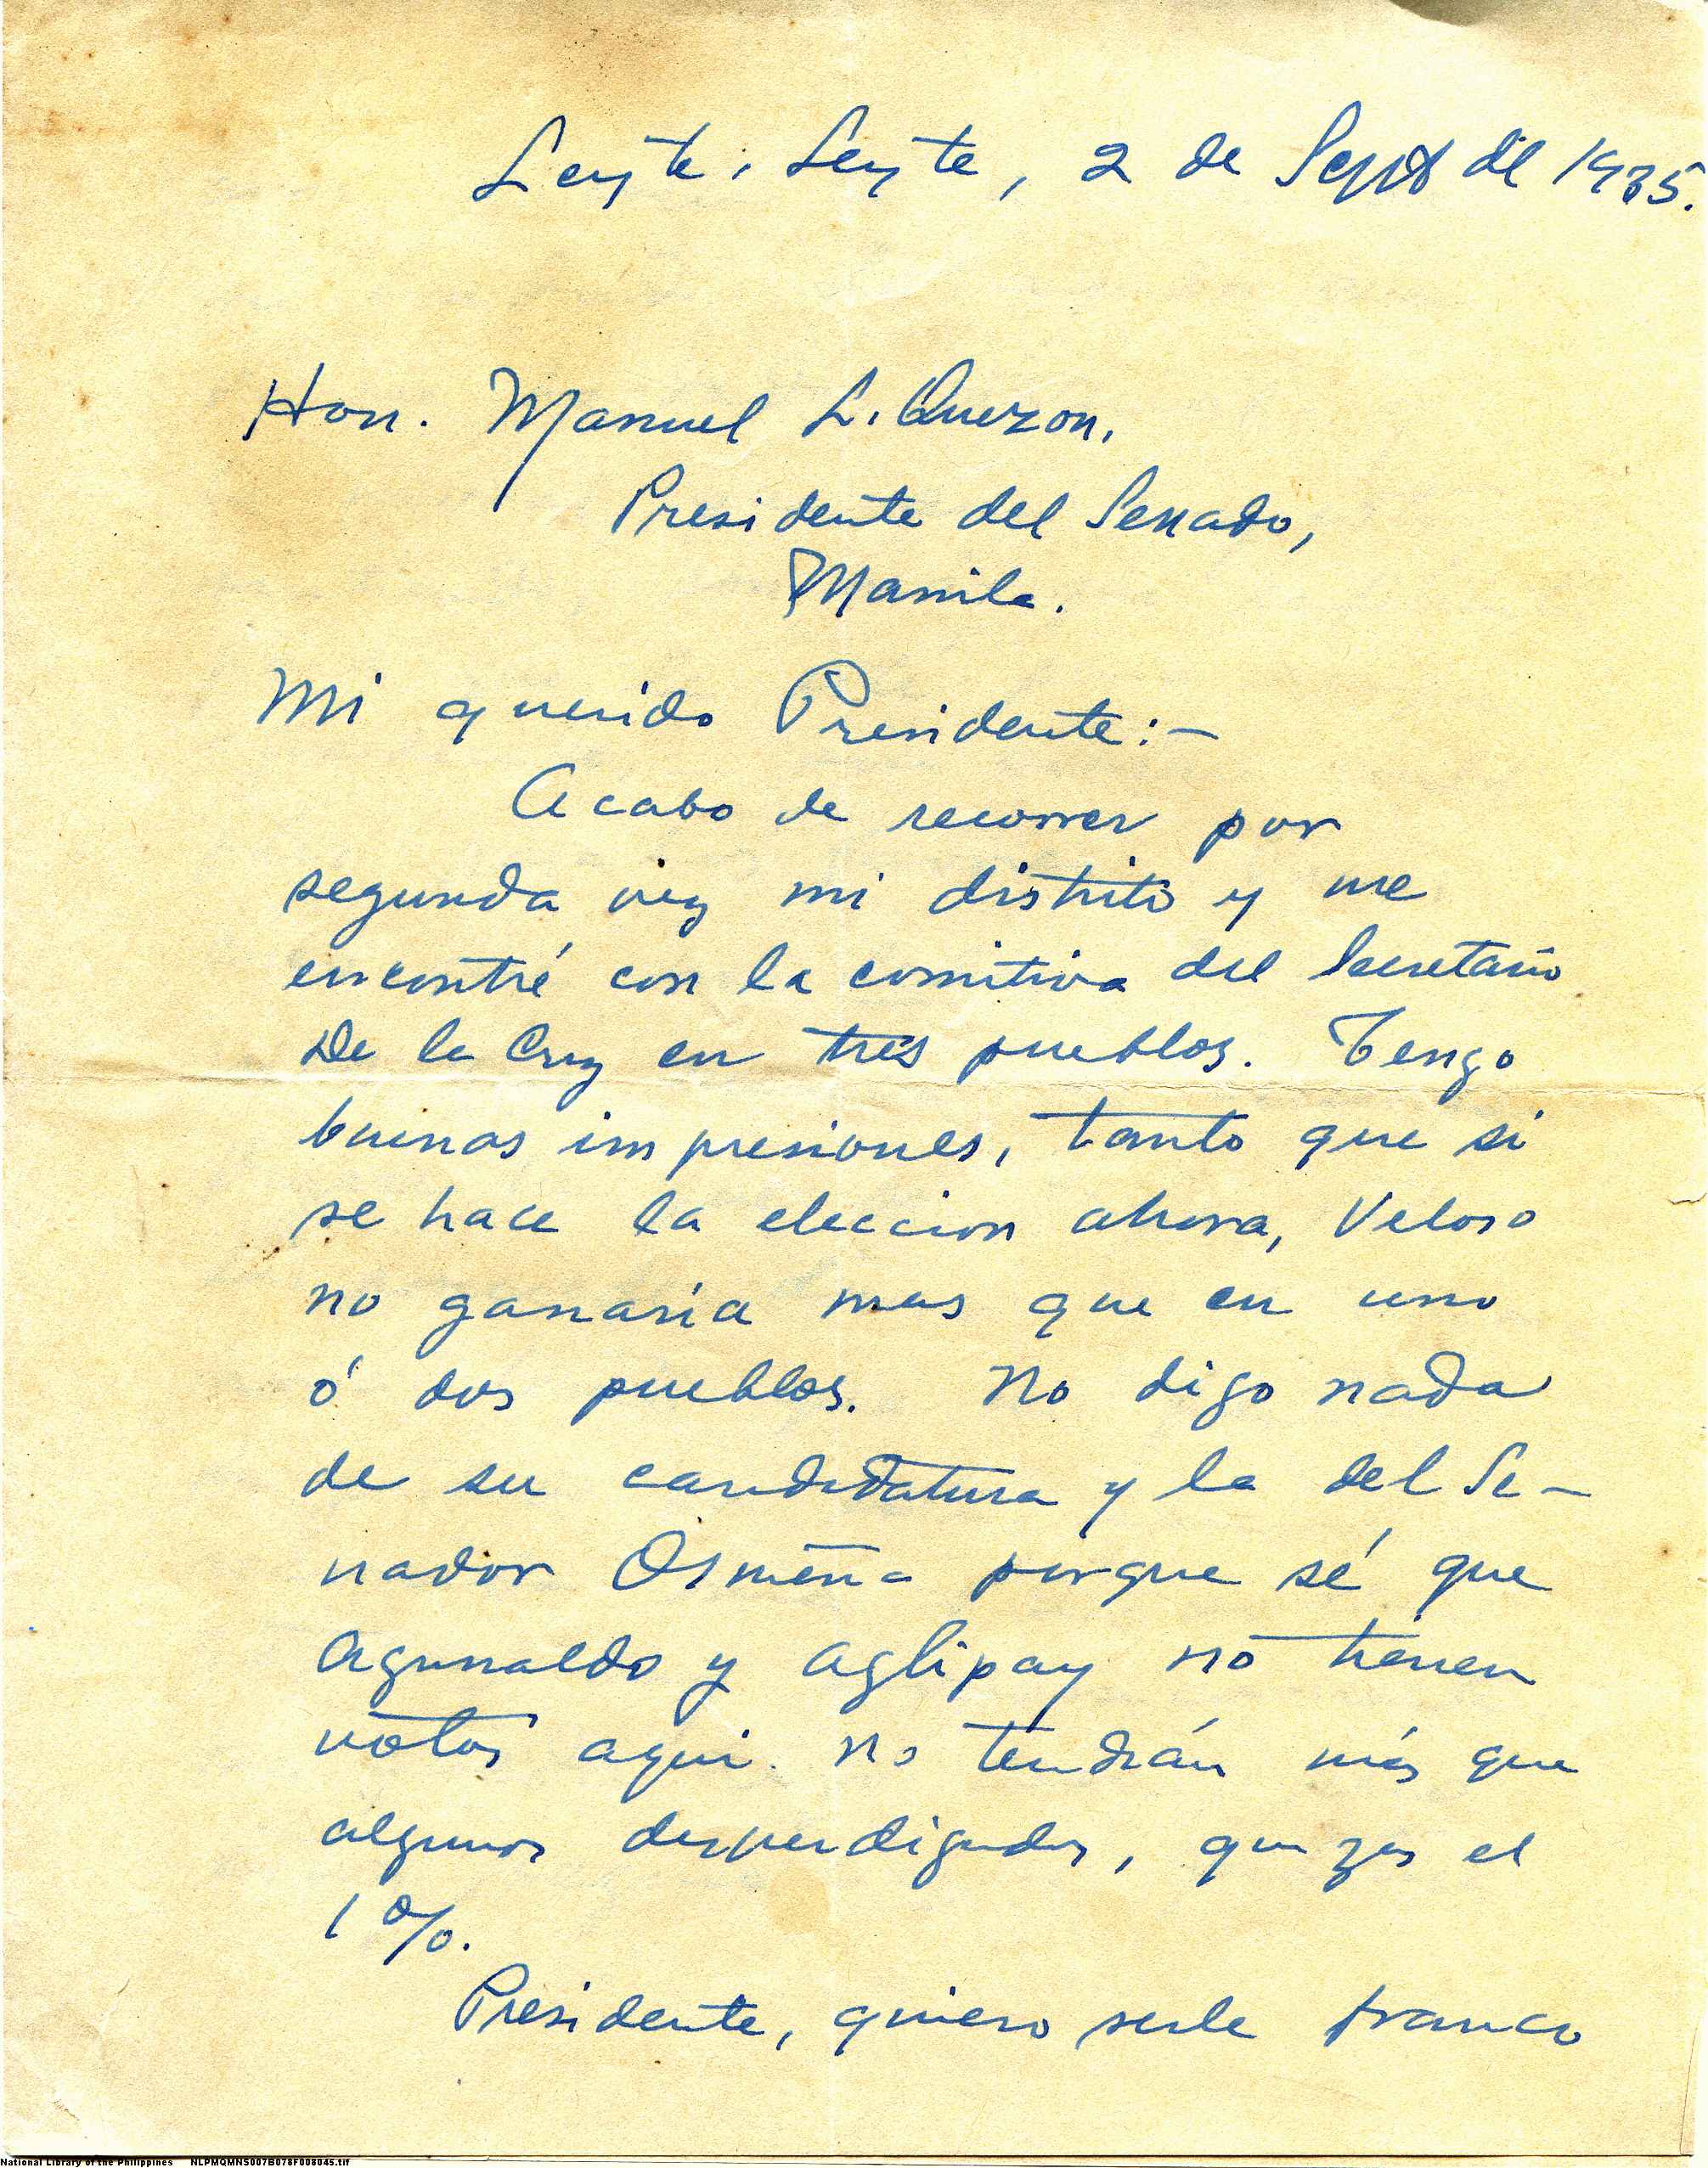 Leyte, Leyte, 2 de Sept de 1935.
Hon. Manuel L. Quezon,
Presidente del Senado,
Manila.
Mi querido Presidente:-
Acabo de recorrer por
segunda vez mi distrito y me
encontré con la comitiva del Secretario
De la Cruz en tres pueblos. Tengo
buenas impresiones, tanto que si
se hace la eleccion ahora, Veloso
no ganaria mas que en uno
ó dos pueblos. No digo nada
de su candidatura y la del Se-
nador Osmeña porque sé que
Aguinaldo y Aglipay no tienen
votos aqui. No tendrán más que
algunos desperdigados, quizas el
1%.
Presidente, quiero serle franco
National Library of the Philippines NLPMQMNS007B078F008045.tif